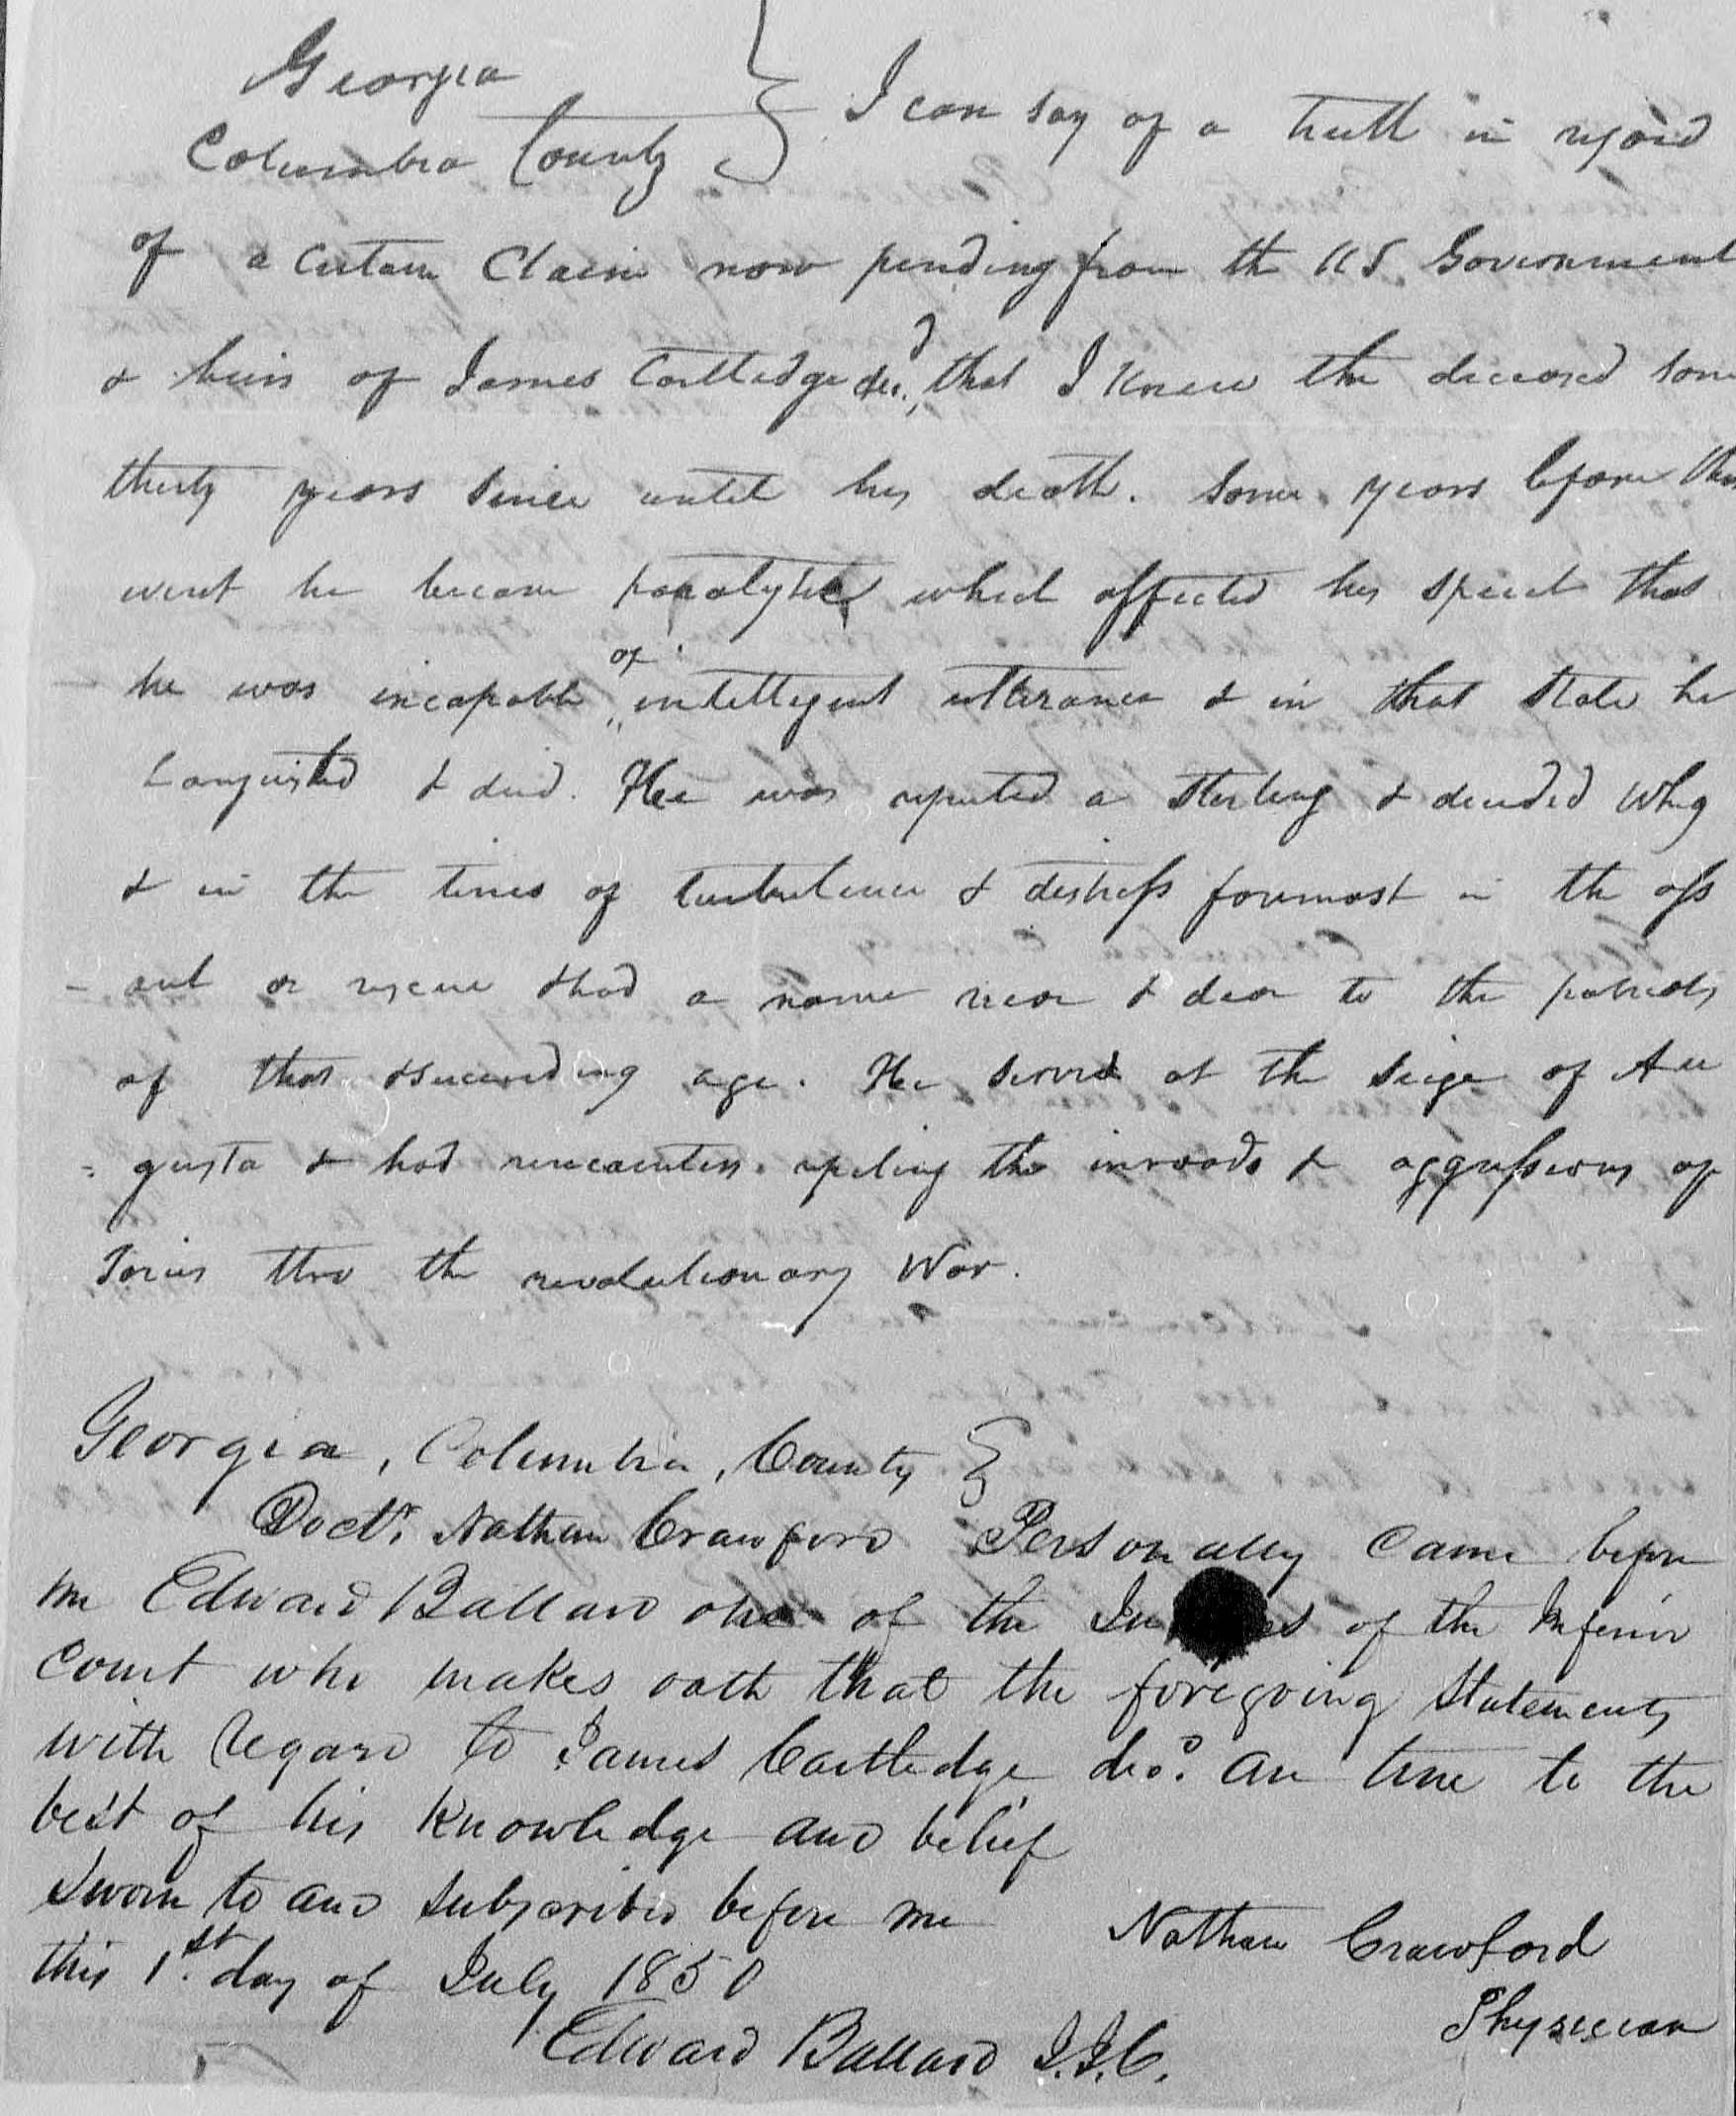 Georgia
Columbia County } I can say of a truth in regard
of a certain Claim now pending from the US Government
& heirs of James Cartledge decd, that I knew the deceased some
thirty years since until his death. Some years before this
event he became paralytic which affected his speech that
he was incapable of intelligent utterance & in that state he
Languished & died. Hee was reputed a sterling & decided Whig
& in the times of turbulence & distress foremost in the ass
- ault or rescue & had a name near & dear to the patriots
of that & succeeding age. He served at the siege of Au
= gusta & had rencounters repeling the inroads & aggressions of
Tories thro the revolutionary War.
Georgia, Columbia, County }
Doctr. Nathan Crawford Personally came before
me Edward Ballard one of the of the Inferior
Court who makes oath that the foregoing statements
with regard to James Cartledge decd. are true to the
best of his knowledge and belief
Sworn to and subscribed before me
this 1st. day of July 1850
Nathan Crawford
Physician
Edward Ballard J.I.C.